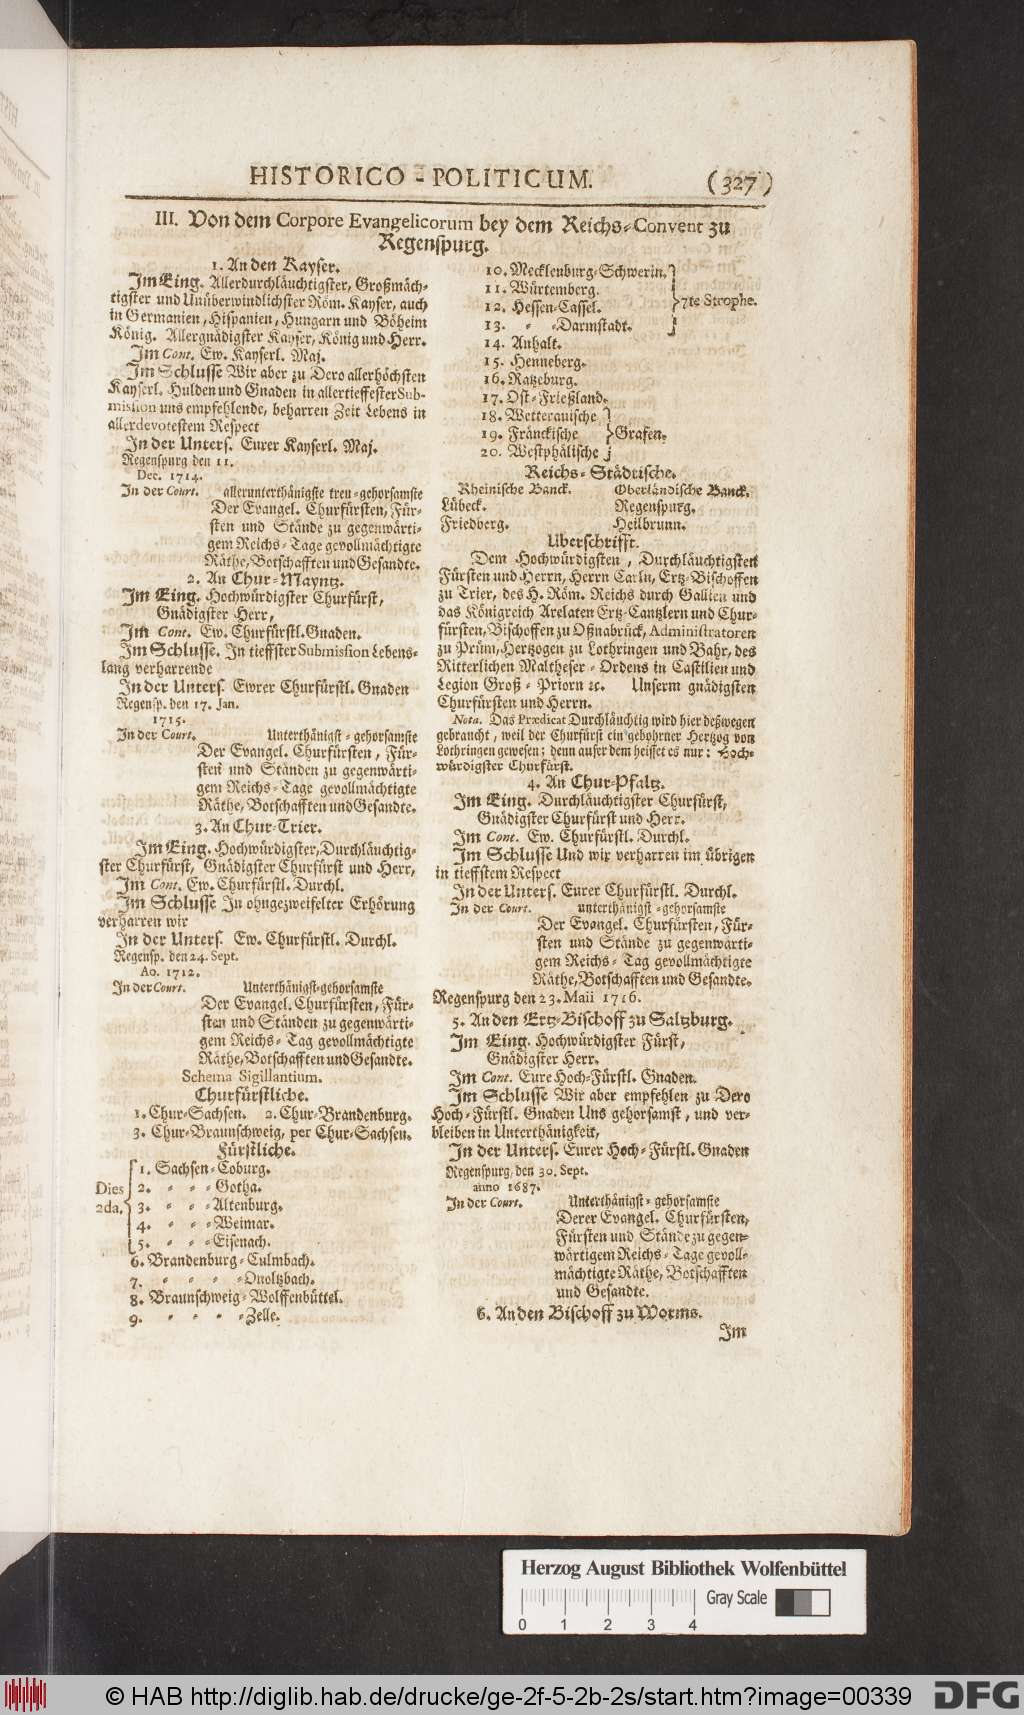 HISTORICO-POLITICUM. (327)
III. Von dem Corpore Evangelicorum bey dem Reichs-Convent zu
Regenspurg.
1. An den Kayser.
Im Eing. Allerdurchläuchtigster, Großmäch-
tigster und Unüberwindlichster Röm. Kayser, auch
in Germanien, Hispanien, Hungarn und Böheim
König. Allergnädigster Kayser, König und Herr.
Im Cont. Ew. Kayserl. Maj.
Im Schlusse Wir aber zu Dero allerhöchsten
Kayserl. Hulden und Gnaden in allertieffester Sub-
mission uns empfehlende, beharren Zeit Lebens in
allerdevotestem Respect
In der Unters. Eurer Kayserl. Maj.
Regenspurg den 11.
Dec. 1714.
In der Court. allerunterthänigste treu-gehorsamste
Der Evangel. Churfürsten, Für-
sten und Stände zu gegenwärti-
gem Reichs-Tage gevollmächtigte
Räthe, Botschafften und Gesandte.
2. An Chur-Mayntz.
Im Eing. Hochwürdigster Churfürst,
Gnädigster Herr,
Im Cont. Ew. Churfürstl. Gnaden.
Im Schlusse. In tieffster Submission Lebens-
lang verharrende
In der Unters. Ewrer Churfürstl. Gnaden
Regensp. den 17. Jan.
1715.
In der Court. Unterthänigst-gehorsamste
Der Evangel. Churfürsten, Für-
sten und Ständen zu gegenwärti-
gem Reichs-Tage gevollmächtigte
Räthe, Botschafften und Gesandte.
3. An Chur-Trier.
Im Eing. Hochwürdigster, Durchläuchtig-
ster Churfürst, Gnädigster Churfürst und Herr,
Im Cont. Ew. Churfürstl. Durchl.
Im Schlusse In ohngezweifelter Erhörung
verharren wir
In der Unters. Ew. Churfürstl. Durchl.
Regensp. den 24. Sept.
Ao. 1712.
In der Court. Unterthänigst-gehorsamste
Der Evangel. Churfürsten, Für-
sten und Ständen zu gegenwärti-
gem Reichs-Tag gevollmächtigte
Räthe, Botschafften und Gesandte.
Schema Sigillantium.
Churfürstliche.
1. Chur-Sachsen. 2. Chur-Brandenburg.
3. Chur-Braunschweig, per Chur-Sachsen.
Fürstliche.
1. Sachsen-Coburg.
Dies 2. - - - Gotha.
2da. 3. - - - Altenburg.
4. - - - Weimar.
5. - - - Eisenach.
6. Brandenburg-Culmbach.
7. - - - - Onoltzbach.
8. Braunschweig-Wolffenbüttel.
9. - - - - Zelle.
10. Mecklenburg-Schwerin.
11. Würtemberg.
12. Hessen-Cassel. 7te Strophe.
13. - - Darmstadt.
14. Anhalt.
15. Henneberg.
16. Ratzeburg.
17. Ost-Frießland.
18. Wetterauische
19. Fränckische Grafen.
20. Westphälische
Reichs-Städtische.
Rheinische Banck. Oberländische Banck.
Lübeck. Regenspurg.
Friedberg. Heilbrunn.
Uberschrifft.
Dem Hochwürdigsten, Durchläuchtigsten
Fürsten und Herrn, Herrn Carln, Ertz-Bischoffen
zu Trier, des H. Röm. Reichs durch Gallien und
das Königreich Arelaten Ertz-Cantzlern und Chur-
fürsten, Bischoffen zu Oßnabrück, Administratoren
zu Prüm, Hertzogen zu Lothringen und Bahr, des
Ritterlichen Maltheser-Ordens in Castilien und
Legion Groß-Priorn ꝛc. Unserm gnädigsten
Churfürsten und Herrn.
Nota. Das Prædicat Durchläuchtig wird hier deßwegen
gebraucht, weil der Churfürst ein gebohrner Hertzog von
Lothringen gewesen; denn auser dem heisset es nur: Hoch-
würdigster Churfürst.
4. An Chur-Pfaltz.
Im Eing. Durchläuchtigster Churfürst,
Gnädigster Churfürst und Herr.
Im Cont. Ew. Churfürstl. Durchl.
Im Schlusse Und wir verharren im übrigen
in tieffstem Respect
In der Unters. Eurer Churfürstl. Durchl.
In der Court. unterthänigst-gehorsamste
Der Evangel. Churfürsten, Für-
sten und Stände zu gegenwärti-
gem Reichs-Tag gevollmächtigte
Räthe, Botschafften und Gesandte.
Regenspurg den 23. Maii 1716.
5. An den Ertz-Bischoff zu Saltzburg.
Im Eing. Hochwürdigster Fürst,
Gnädigster Herr.
Im Cont. Eure Hoch-Fürstl. Gnaden.
Im Schlusse Wir aber empfehlen zu Dero
Hoch-Fürstl. Gnaden Uns gehorsamst, und ver-
bleiben in Unterthänigkeit,
In der Unters. Eurer Hoch-Fürstl. Gnaden
Regenspurg, den 30. Sept.
anno 1687.
In der Court. Unterthänigst-gehorsamste
Derer Evangel. Churfürsten,
Fürsten und Stände zu gegen-
wärtigem Reichs-Tage gevoll-
mächtigte Räthe, Botschafften
und Gesandte.
6. An den Bischoff zu Worms.
Im
Herzog August Bibliothek Wolfenbüttel
Gray Scale
0 1 2 3 4
© HAB http://diglib.hab.de/drucke/ge-2f-5-2b-2s/start.htm?image=00339
DFG